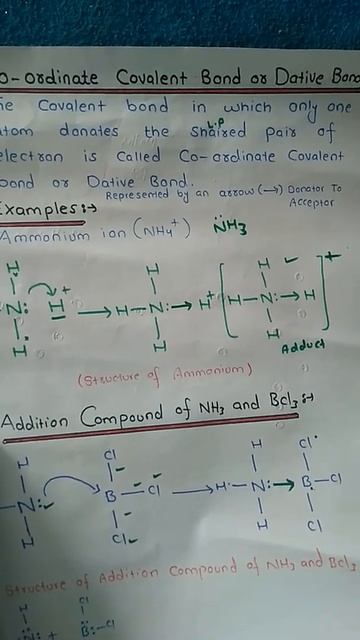 o-ordinate Covalent Bond or Dative Bond
he Covalent bond in which only one
L.P
atom donates the shaired pair of
electron is Called Co-ordinate Covalent
bond or Dative Bond.
Represented by an arrow (→) Donator To
Acceptor
Examples:→
Ammonium ion (NH₄⁺) N̈H₃
H H H +
N: H⁺ → H—N:→ H⁺ [H—N:→H]
H H H
Adduct
(Structure of Ammonium)
Addition Compound of NH₃ and Bcl₃:→
H Cl H Cl
N: B—Cl → H—N:→B—Cl
H Cl H Cl
Structure of Addition Compound of NH₃ and Bcl₃
H Cl
N: + B:—Cl